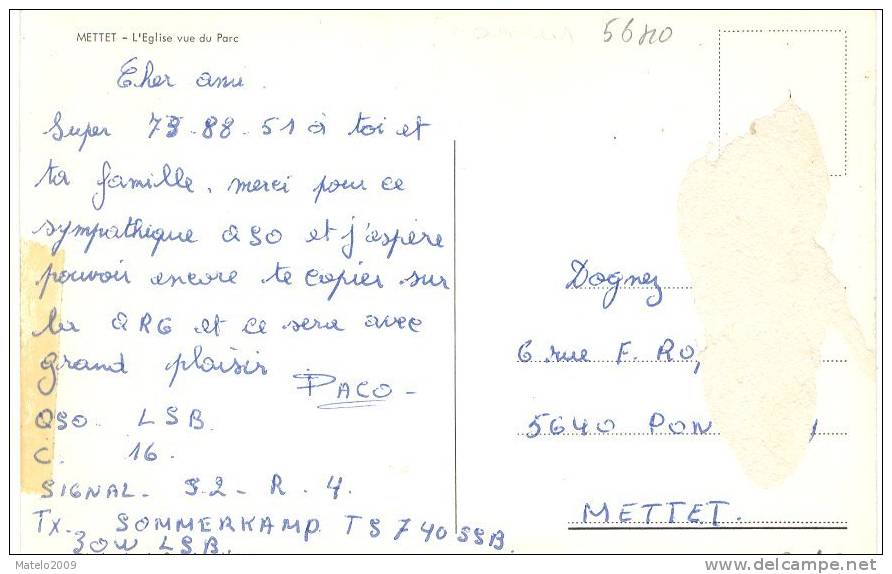 METTET - L'Eglise vue du Parc
5640
Cher ami.
Super 73-88-51 à toi et
ta famille, merci pour ce
sympathique QSO et j'espère
pouvoir encore te copier sur
la QRG et ce sera avec
grand plaisir
PACO-
QSO. LSB.
C. 16.
SIGNAL- S.2-R.4.
TX- SOMMERKAMP TS 740 SSB.
30W LSB.
Dognez
6 rue F. RO
5640 PON
METTET.
Matelo2009
delcampe.net